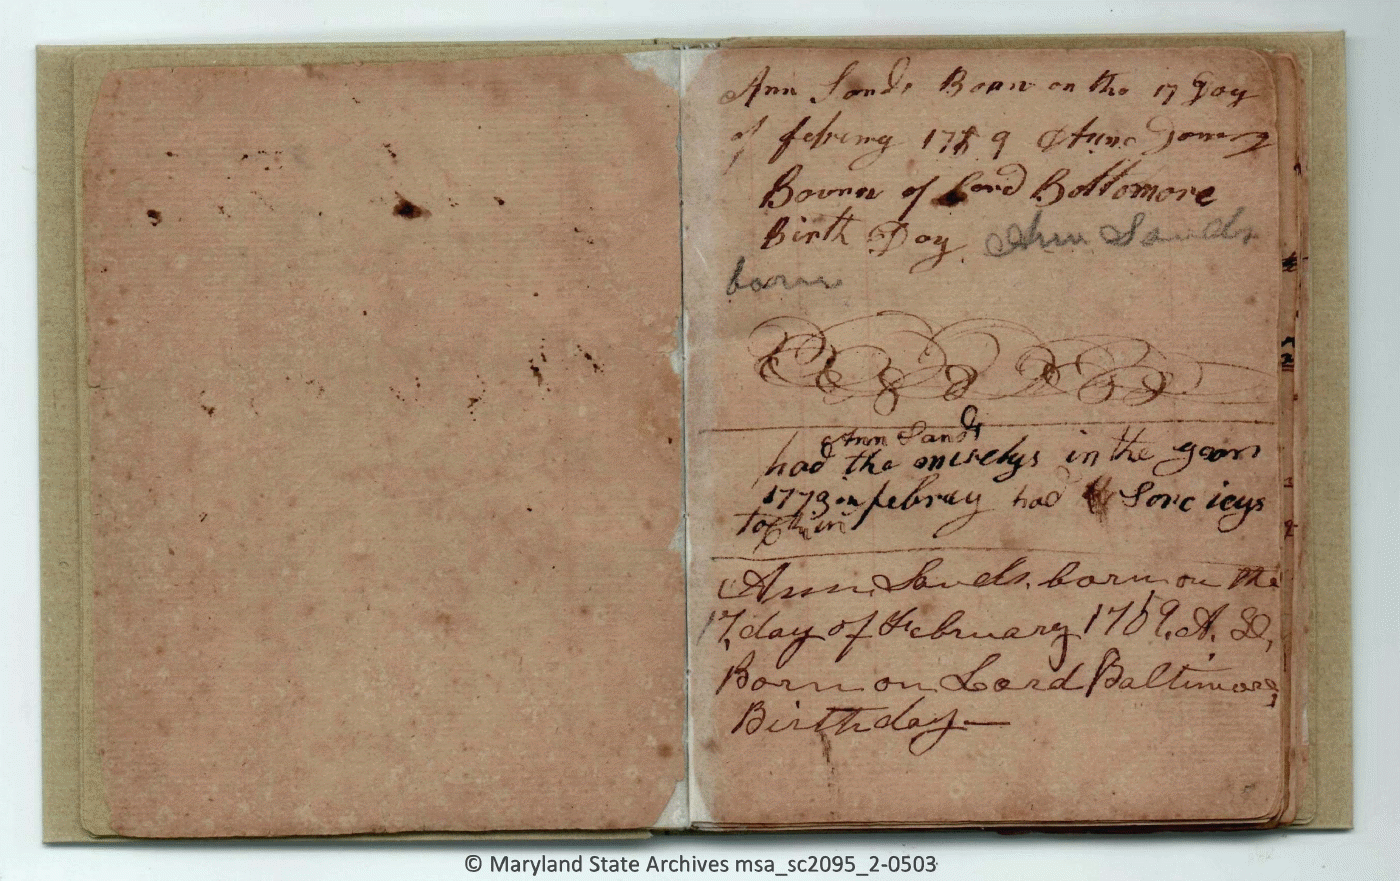 Ann Sands Born on the 17 Day
of febring 1769 Anno Domeny
Bournn of Lord Boltomore
Birth Day. Ann Sands
born
Ann Sands
had the miselys in the year
1779 in febray had Sore ieys
Ann Sands born on the
17, day of February 1769. A. D,
Born on Lord Baltimore,
Birthday—
© Maryland State Archives msa_sc2095_2-0503